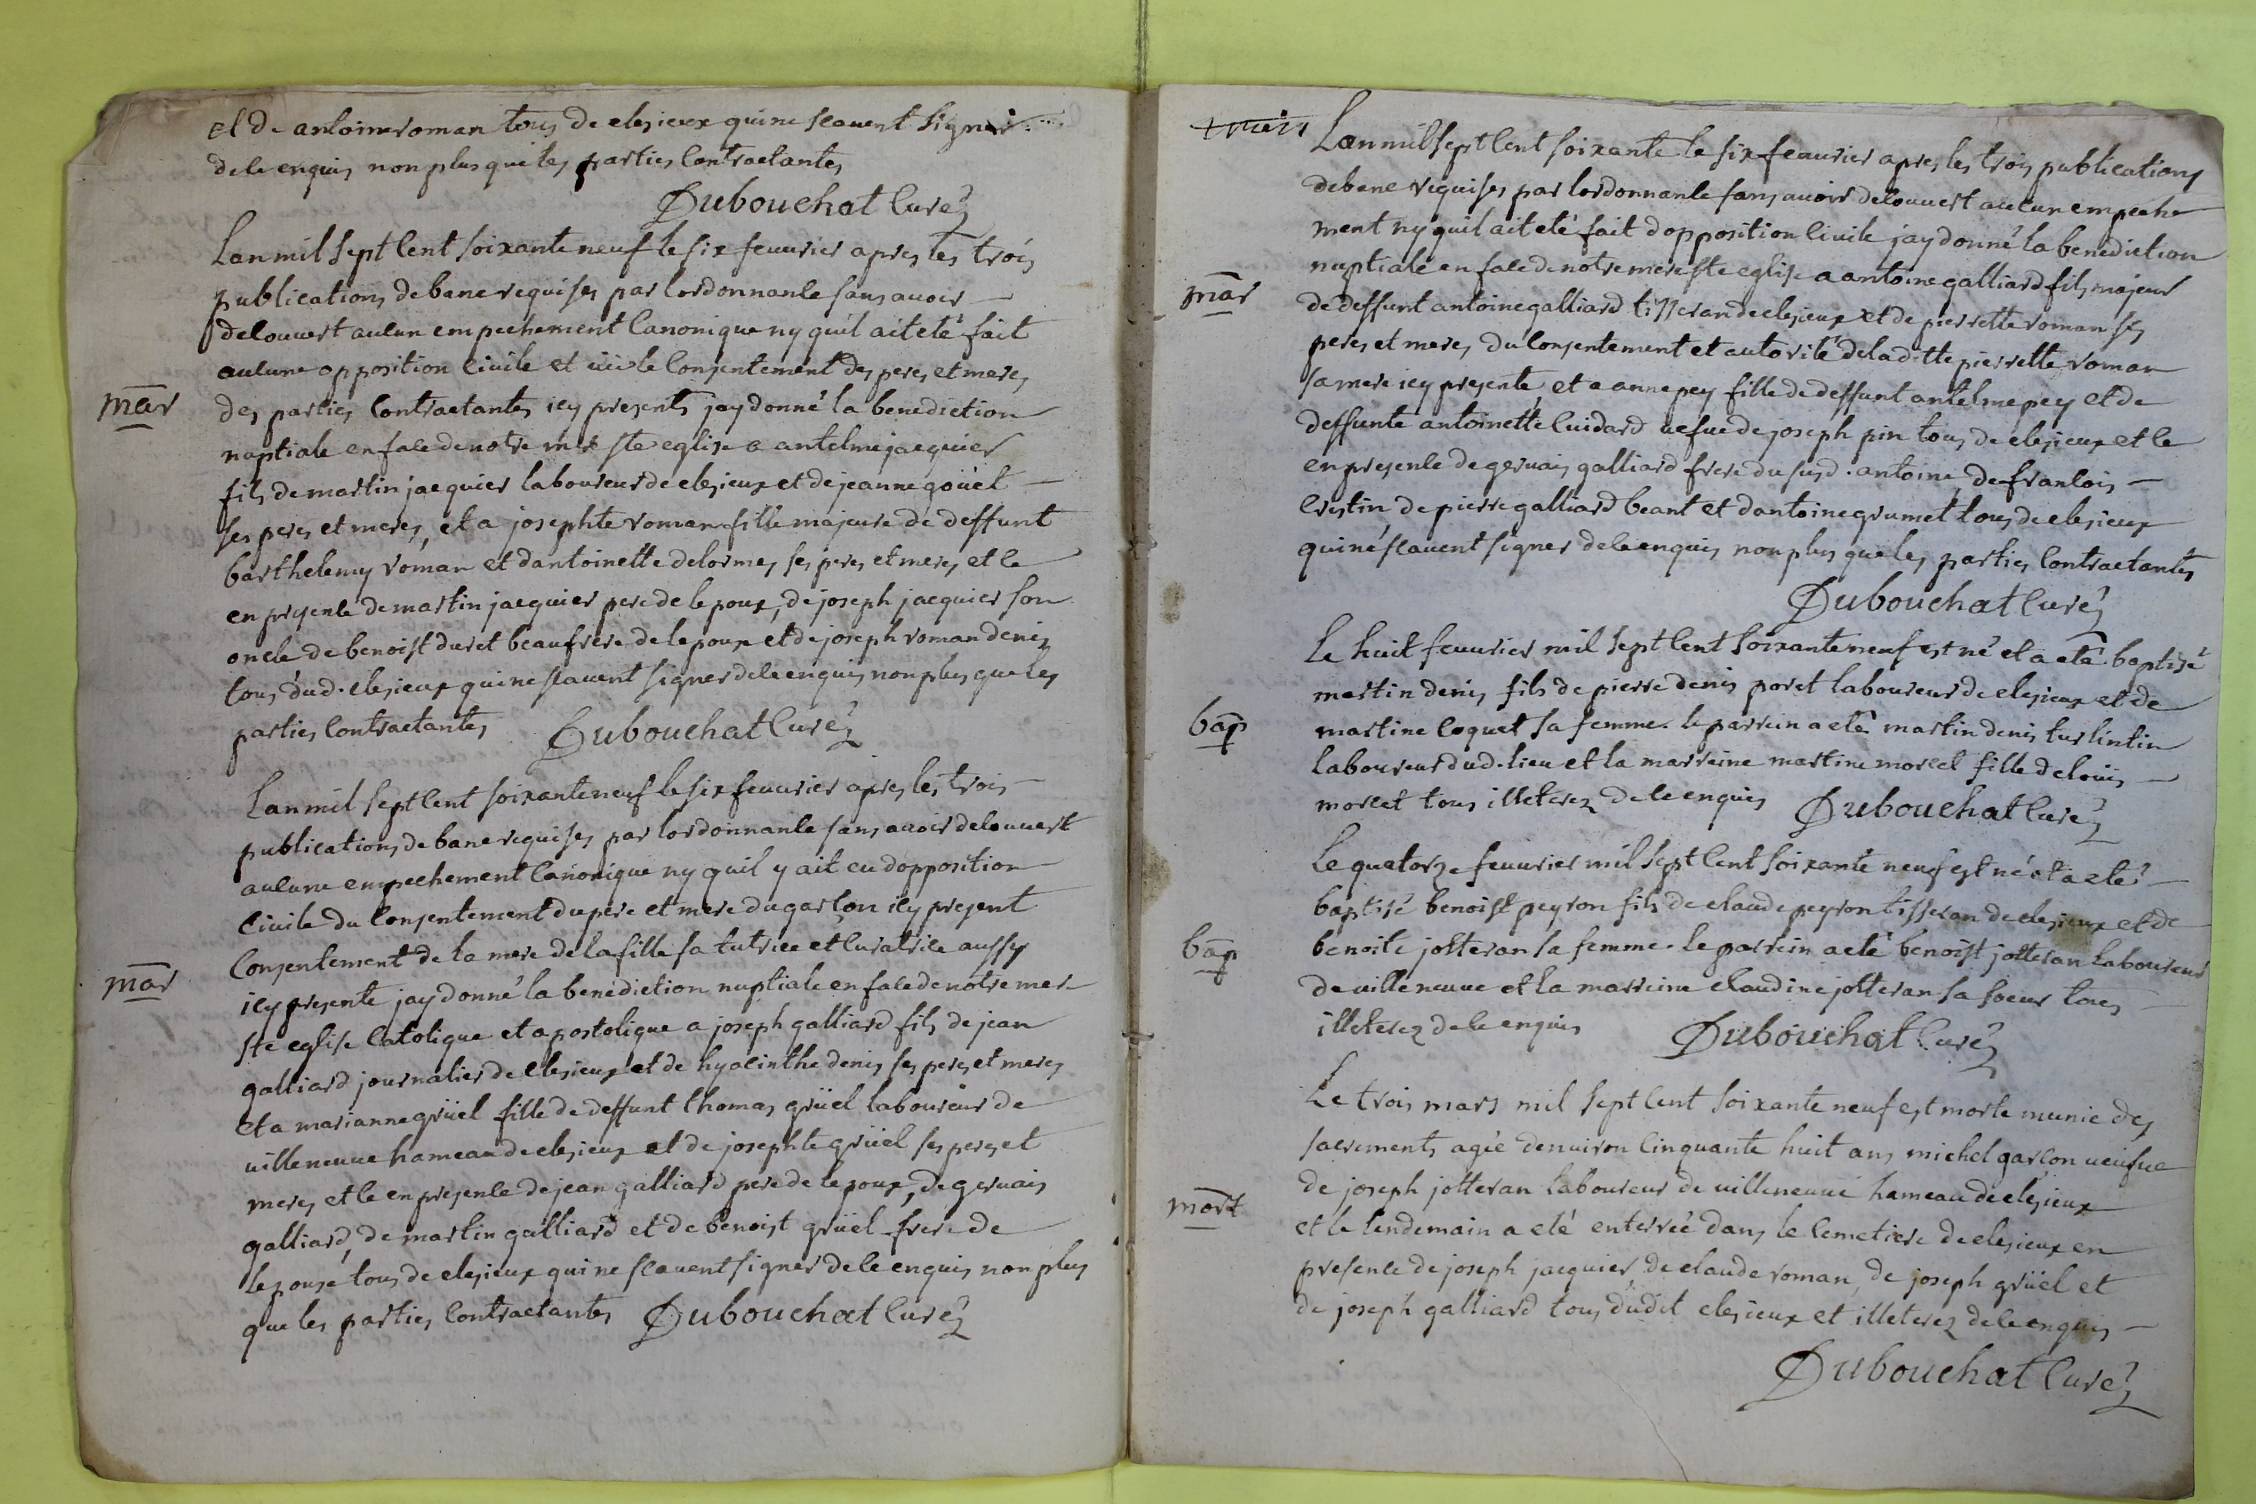 et de antoine roman tous de clezieux qui ne scavent signer
de ce enquis non plus que les parties contractantes
Dubouchat Curé
Lan mil sept cent soixante neuf le six feuurier apres les trois
publications de banc requises par lordonnance sans auoir
decouuert aucun empechement canonique ny quil ait eté fait
aucune opposition ciuile et uû le consentement des peres et meres
mar
des parties contractantes icy presents jay donné la benediction
nuptiale en face de notre mere ste eglise a antelme jacquier
fils de martin jacquier laboureur de clezieux et de jeanne goüel
ses peres et meres, et a josephte roman fille majeure de deffunt
barthelemy roman et dantoinette delormes ses peres et meres et ce
en presence de martin jacquier pere de lepoux, de joseph jacquier son
oncle de benoist duret beaufrere de lepoux et de joseph roman denis
tous dud. clezieux qui ne scauent signer de ce enquis non plus que les
parties contractantes Dubouchat Curé
Lan mil sept cent soixante neuf le six feuurier apres les trois
publications de banc requises par lordonnance sans auoir decouuert
aucune empechement canonique ny quil y ait eu dopposition
ciuile du consentement du pere et mere du garçon icy present
consentement de la mere de la fille sa tutrice et curatrice aussy
mar
icy presente jay donné la benediction nuptiale en face de notre mere
ste eglise catolique et apostolique a joseph galliard fils de jean
galliard journalier de clezieux et de hyacinthe denis ses peres et meres
et a marianne grüel fille de deffunt thomas grüel laboureur de
uilleneuue hameau de clezieux et de josephte grüel ses peres et
meres et ce en presence de jean galliard pere de lepoux, de geruais
galliard, de martin galliard et de benoist grüel frere de
lepouse tous de clezieux qui ne scauent signer de ce enquis non plus
que les parties contractantes Dubouchat Curé
Lan mil sept cent soixante le six feauurier apres les trois publications
de banc requises par lordonnance sans auoir decouuert aucun empeche
ment ny quil ait eté fait dopposition ciuile jay donné la benediction
mar
nuptiale en face de notre mere ste eglise a antoine galliard fils majeur
de deffunt antoine galliard tisseran de clezieux et de pierrette roman ses
peres et meres du consentement et autorité de la ditte pierrette roman
sa mere icy presente, et a anne pey fille de deffunt antelme pey et de
deffunte antoinette cuidard uefue de joseph pin tous de clezieux et ce
en presence de geruais galliard frere du susd. antoine de francois
crestin de pierre galliard beant et dantoine grumet tous de clezieux
qui ne scauent signer de ce enquis non plus que les parties contractantes
Dubouchat Curé
Le huit feuurier mil sept cent soixante neuf est né et a eté baptisé
martin denis fils de pierre denis poret laboureur de clezieux et de
bap
martine coquet sa femme. le parrein a eté martin denis turlintin
laboureur dud. lieu et la marreine martine morcel fille de louis
morcel tous illeterez de ce enquis Dubouchat Curé
Le quatorze feuurier mil sept cent soixante neuf est né et a eté
baptisé benoist peyron fils de claude peyron tisseran de clezieux et de
bap
benoite jolteran sa femme. le parrein a eté benoist jolteran laboureur
de uilleneuue et la marreine claudine jolteran sa soeur tous
illeterez de ce enquis Dubouchat Curé
Le trois mars mil sept cent soixante neuf est morte munie des
sacrements agée denuiron cinquante huit ans michel garcon ueufue
mort
de joseph jolteran laboureur de uilleneuue hameau de clezieux
et le lendemain a eté enterrée dans le cemetiere de clezieux en
presence de joseph jacquier, de claude roman, de joseph grüel et
de joseph galliard tous dudit clezieux et illeterez de ce enquis
Dubouchat Curé